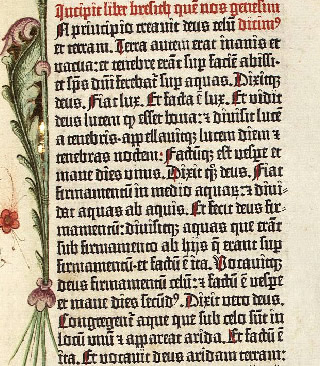 Incipit liber bresith quē nos genesim
N principio creavit deus celū dicim⁹
et terram. Terra autem erat inanis et
vacua: et tenebre erāt sup faciē abissi:
et sp̄s dñi ferebat̄ sup aquas. Dixitq;
deus. Fiat lux. Et facta ē lux. Et vidit
deus lucem q̄ esset bona: ⁊ divisit lucē
a tenebris · appellavitq; lucem diem ⁊
tenebras noctem: Factūq; est vespe et
mane dies unus. Dixit q̄; deus. Fiat
firmamentū in medio aquaꝝ: ⁊ divi-
dat aquas ab aquis. Et fecit deus fir-
mamentū: divisitq; aquas que erāt
sub firmamento ab hijs q̄ erant sup
firmamentū: et factū ē ita. Vocavitq;
deus firmamentū celū: ⁊ factū ē vespe
et mane dies secūd⁹. Dixit vero deus.
Congregent̄ aque que sub celo sūt in
locū unū ⁊ appareat arida. Et factū ē
ita. Et vocavit deus aridam terram: